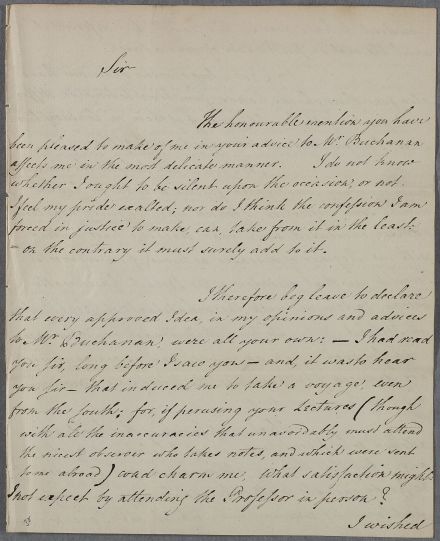 Sir
The honourable mention you have
been pleased to make of me in your advice to Mr. Buchanan
affects me in the most delicate manner. I do not know
whether I ought to be silent upon the occasion, or not.
I feel my pride exalted; nor do I think the confession I am
forced in justice to make, can, take from it in the least:
- on the contrary it must surely add to it.
I therefore beg leave to declare
that every approved Idea, in my opinions and advices
to Mr. Buchanan, were all your own: — I had read
you Sir, long before I saw you — and, it was to hear
you Sir — that induced me to take a voyage, even
from the South; for, if perusing your Lectures (though
with all the inaccuracies that unavoidably must attend
the nicest observer who takes notes, and which were sent
to me abroad) coud charm me, what satisfaction might
I not expect by attending the Professor in person?
I wished